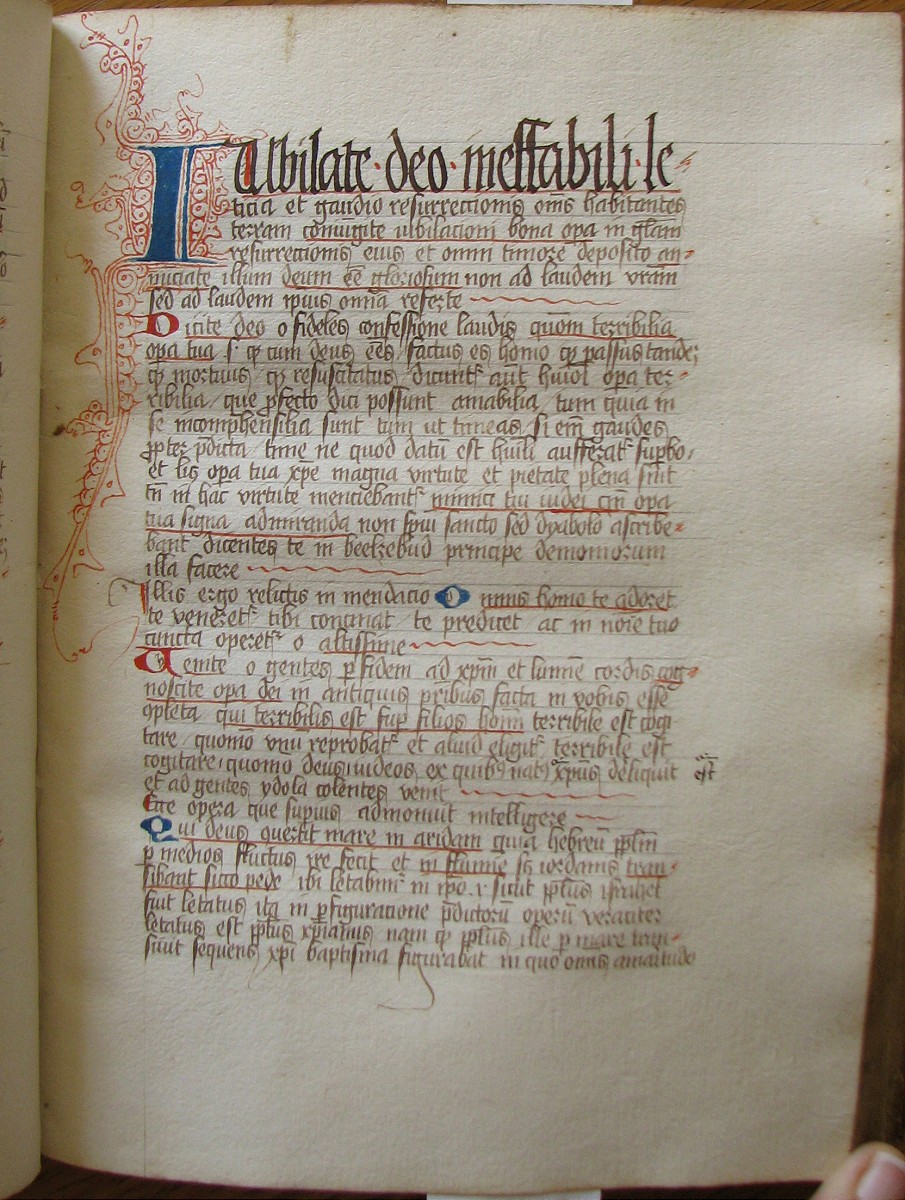 IUbilate · deo · ineffabili · le
ticia et gaudio resurrectionis om̄s habitantes
terram coniungite iubilacioni bona opa in gl̄am
resurrectionis eius et omni timore deposito an
nuciate illum deum eē gloriosum non ad laudem vr̄am
sed ad laudem ipius omnia referte
Dicite deo o fideles confessione laudis quom̄ terribilia
opa tua s qp cum deus eēs factus es homo qp passus tandē
qp mortuus qp resuscitatus / dicunt aūt huiōi opa ter
ribilia / que pfecto dici possunt amabilia / tum quia in
se incomphensilia sunt tum ut timeas / si em̄ gaudes
ppter pd̄icta / time ne quod datū est hūili aufferat supbo /
et lꝫ opa tua xp̄e magna virtute et pietate plena sint
tn̄ in hac virtute menciebant inimici tui iudei cum opa
tua signa admiranda non spui sancto sed dyabolo ascribe
bant dicentes te in beelzebud principe demoniorum
illa facere
Illis ergo relictis in mendacio Omnis homo te adoret
te veneret tibi concinat te predicet ac in noīe tuo
cuncta operet o altissime
Venite o gentes p fidem ad xpm̄ et lumine cordis cog
noscite opa dei in antiquis pribus facta in vobis esse
9pleta qui terribilis est sup filios hom̄ terribile est cogi
tare / quomō vnū reprobat et aliud eligit terribile est
cogitare quomō deus iudeos ex quibꝰ natꝰ xpūs deliquit est
et ad gentes ydola colentes venit
Ecce opera que supius admonuit intelligere
Qui deus querit mare in aridam quia hebreū pplm̄
p medios fluctus ire fecit et in flumine iordanis tran
sibant sicco pede ibi letabimꝰ in ipō · i · sicut pplus isrl̄
fuit letatus ita in pfiguracione pd̄ictorū operū veraciter
letatus est pplus xp̄ianus nam qp pplus ille p mare tran
siuit sequens xpi baptisma figurabat in quo omīs amaritudo